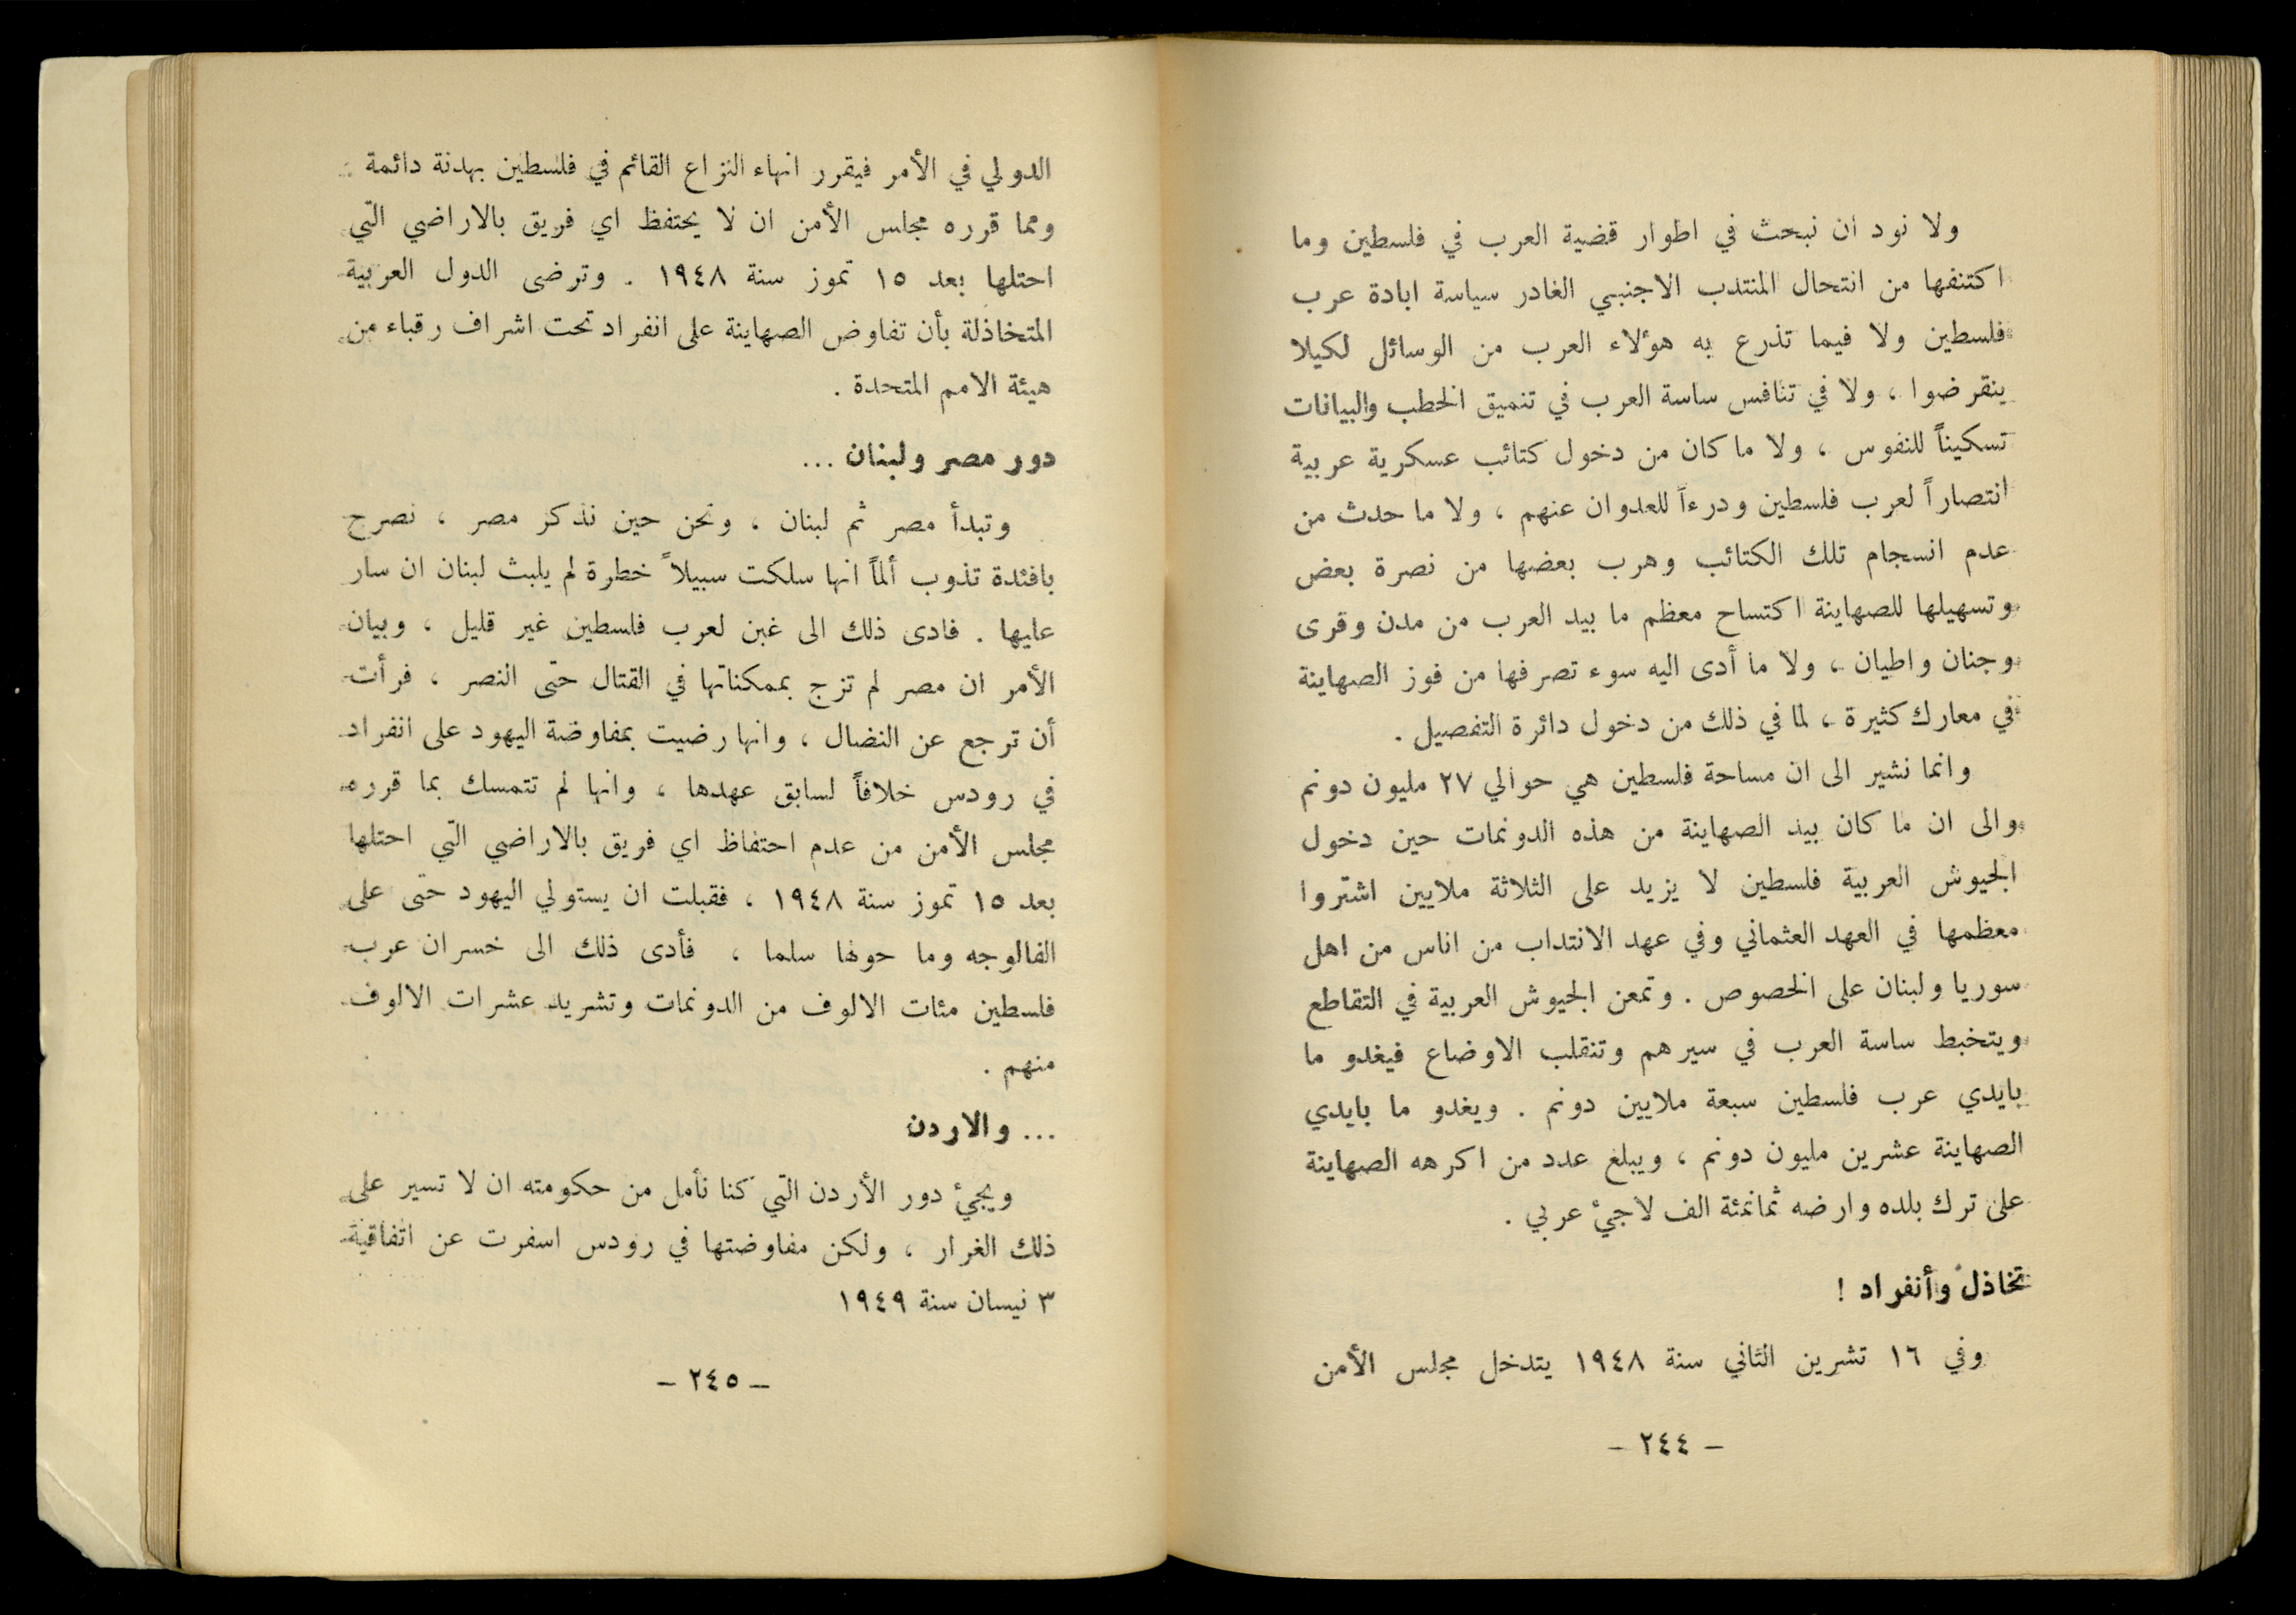 ولا نود ان نبحث في اطوار قضية العرب في فلسطين وما
اكتنفها من انتحال المنتدب الاجنبي الغادر سياسة ابادة عرب
فلسطين ولا فيما تذرع به هؤلاء العرب من الوسائل لكيلا
ينقرضوا ، ولا في تنافس ساسة العرب في تنميق الخطب والبيانات
تسكيناً للنفوس ، ولا ما كان من دخول كتائب عسكرية عربية
انتصاراً لعرب فلسطين ودرءاً للعدوان عنهم ، ولا ما حدث من
عدم انسجام تلك الكتائب وهرب بعضها من نصرة بعض
وتسهيلها للصهاينة اكتساح معظم ما بيد العرب من مدن وقرى
وجنان واطيان ، ولا ما أدى اليه سوء تصرفها من فوز الصهاينة
في معارك كثيرة ، لما في ذلك من دخول دائرة التفصيل .
وانما نشير الى ان مساحة فلسطين هي حوالي ٢٧ مليون دونم
والى ان ما كان بيد الصهاينة من هذه الدونمات حين دخول
الجيوش العربية فلسطين لا يزيد على الثلاثة ملايين اشتروا
معظمها في العهد العثماني وفي عهد الانتداب من اناس من اهل
سوريا ولبنان على الخصوص . وتمعن الجيوش العربية في التقاطع
ويتخبط ساسة العرب في سيرهم وتنقلب الاوضاع فيغدو ما
بايدي عرب فلسطين سبعة ملايين دونم . ويغدو ما بايدي
الصهاينة عشرين مليون دونم ، ويبلغ عدد من اكرهه الصهاينة
على ترك بلده وارضه ثمانمئة الف لاجئ عربي .
تخاذل وأنفراد !
وفي ١٦ تشرين الثاني سنة ١٩٤٨ يتدخل مجلس الأمن
– ٢٤٤ –
الدولي في الأمر فيقرر انهاء النزاع القائم في فلسطين بهدنة دائمة .
ومما قرره مجلس الأمن ان لا يحتفظ اي فريق بالاراضي التي
احتلها بعد ١٥ تموز سنة ١٩٤٨ . وترضى الدول العربية
المتخاذلة بأن تفاوض الصهاينة على انفراد تحت اشراف رقباء من
هيئة الامم المتحدة .
دور مصر ولبنان ...
وتبدأ مصر ثم لبنان ، ونحن حين نذكر مصر ، نصرح
بافئدة تذوب ألماً انها سلكت سبيلاً خطرة لم يلبث لبنان ان سار
عليها . فادى ذلك الى غبن لعرب فلسطين غير قليل ، وبيان
الأمر ان مصر لم تزج بممكناتها في القتال حتى النصر ، فرأت
أن ترجع عن النضال ، وانها رضيت بمفاوضة اليهود على انفراد
في رودس خلافاً لسابق عهدها ، وانها لم تتمسك بما قرره
مجلس الأمن من عدم احتفاظ اي فريق بالاراضي التي احتلها
بعد ١٥ تموز سنة ١٩٤٨ ، فقبلت ان يستولي اليهود حتى على
الفالوجه وما حولها سلما ، فأدى ذلك الى خسران عرب
فلسطين مئات الالوف من الدونمات وتشريد عشرات الالوف
منهم .
... والاردن
ويجيئ دور الأردن التي كنا نأمل من حكومته ان لا تسير على
ذلك الغرار ، ولكن مفاوضتها في رودس اسفرت عن اتفاقية
٣ نيسان سنة ١٩٤٩
– ٢٤٥ –